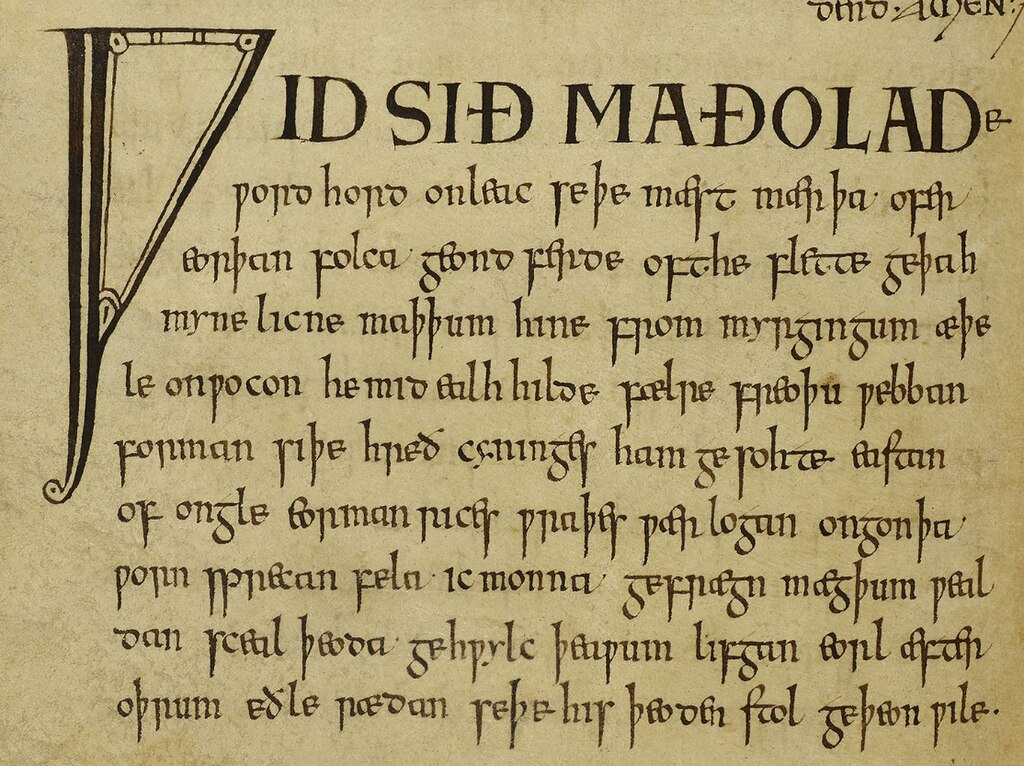 AMEN:7
ǷIDSIÐ MAÐOLADE
ƿord hord onleac seþe mæst mærþa ofer
eorþan folca geond ferde oft he flette geþah
myne licne maþþum hine from myrgingum æþe
le onƿocon he mid ealh hilde fælre freoþu ƿebban
forman siþe hreð cyninges ham gesohte eastan
of ongle eorman rices ƿraþes ƿær logan ongon þa
ƿorn sprecan fela · ic monna gefrægn mægþum ƿeal
dan sceal þeoda gehƿylc þeaƿum lifgan eorl æfter
oþrum eðle rædan seþe his þeoden stol geþeon ƿile·